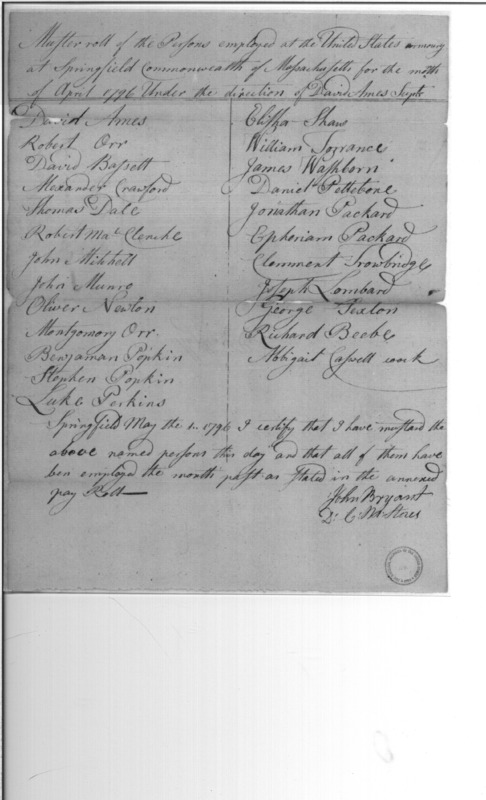 Muster roll of the Persons employed at the United States armoury
at Springfield Commonwealth of Massachusetts for the month
of April 1796 Under the direction of David Ames Supt
David Ames
Robert Orr
David Bassett
Alexander Crawford
Thomas Dale
Robert Mac Clenche
John Mitchell
John Munro
Oliver Newton
Montgomory Orr
Benjaman Popkin
Stephen Popkin
Luke Perkins
Elisha Shaw
William Torrance
James Washborn
Daniel Pettebone
Jonathan Packard
Ephoriam Packard
Clemment Trowbridge
Joseph Lombard
George Sexton
Richard Beebe
Abbigail Capell cook
Springfield May the 1. 1796 I certify that I have mustard the
above named persons this day and that all of them have
ben employed the month past as stated in the annexed
pay Roll
John Bryant
D. C. M. Stores